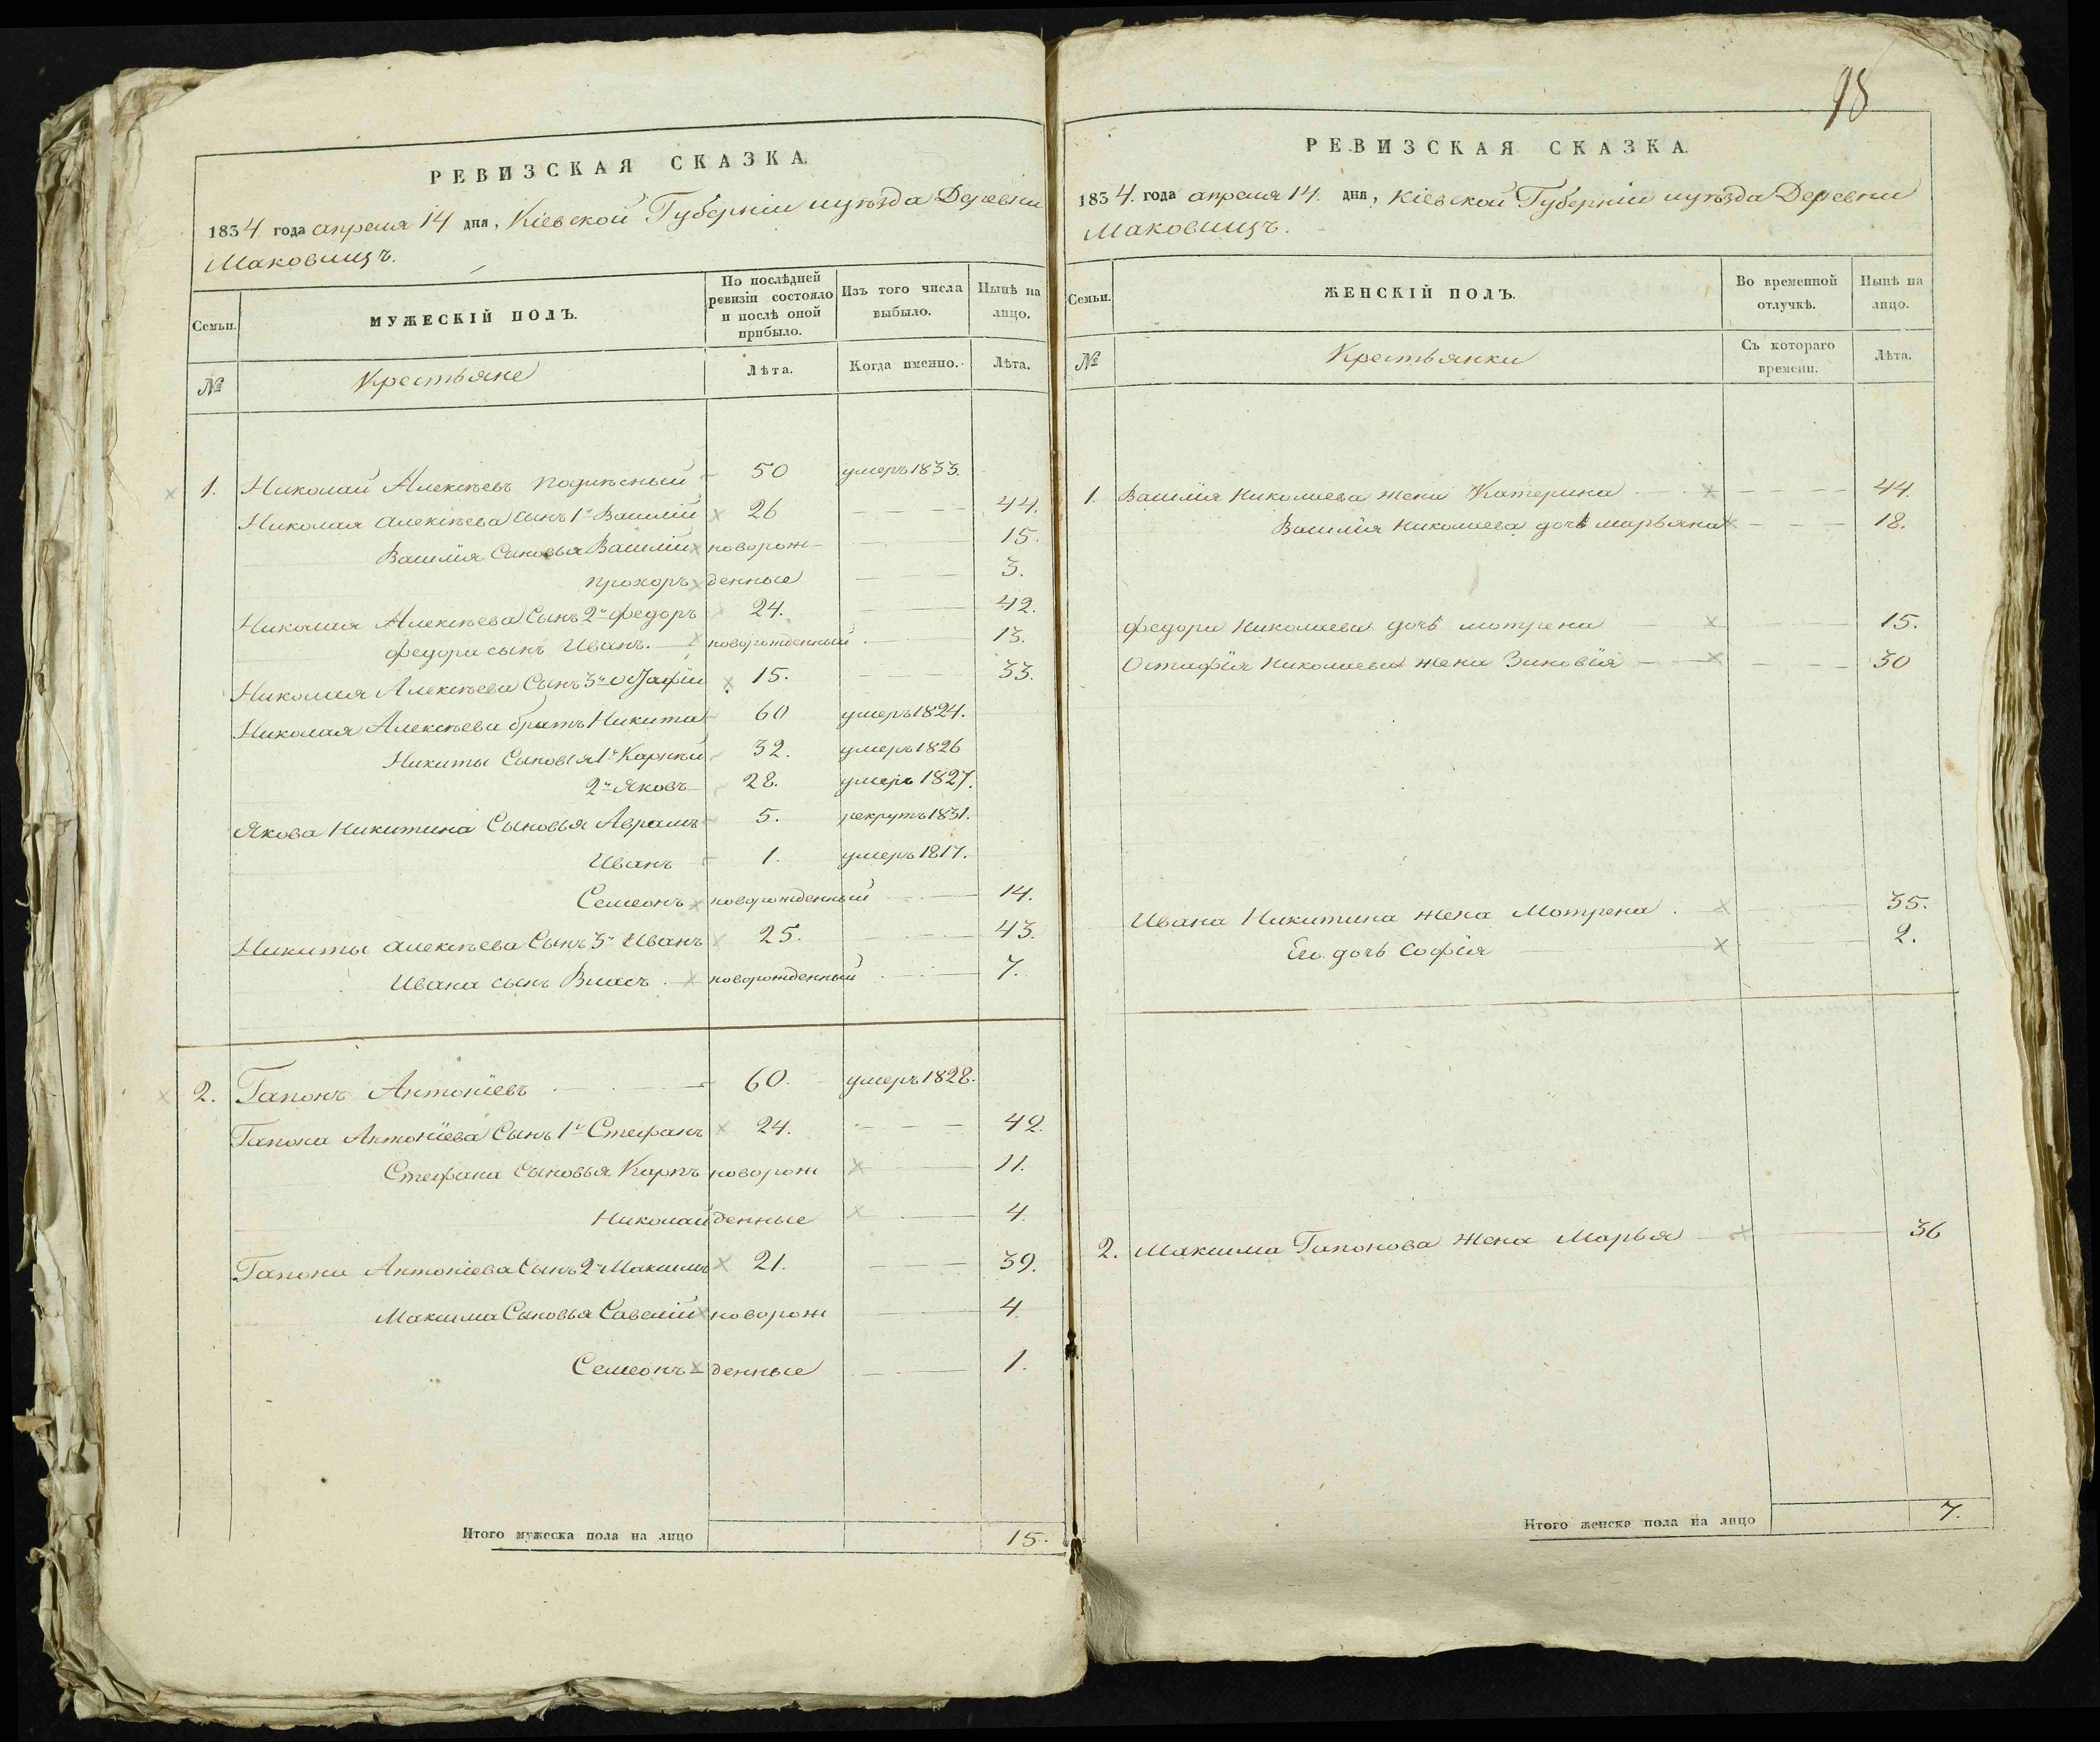 РЕВИЗСКАЯ СКАЗКА.
1834. года апреля 14 дня, Кіевской Губерніи иуѣзда Деревни
Маковищъ.
Семьи.
МУЖЕСКІЙ ПОЛЪ.
По послѣдней ревизіи состояло и послѣ оной прибыло.
Изъ того числа выбыло.
Нынѣ на лицо.
№
Крестьяне
Лѣта.
Когда именно.
Лѣта.
1. Николай Алексѣевъ Подлѣсный 50 умеръ 1833.
Николая Алексѣева сынъ 1й Василій 26 44.
Василія Сыновья Василій новорож- 15.
Прохоръ денные 3.
Николая Алексѣева Сынъ 2й Федоръ 24. 42.
Федора сынъ Иванъ. новорожденный 13.
Николая Алексѣева Сынъ 3й 15. 33.
Николая Алексѣева братъ Никита 60 умеръ 1824.
Никиты Сыновья 1й 32. умеръ 1826
2й Яковъ 28. умеръ 1827.
Якова Никитина Сыновья Аврамъ 5. рекрутъ 1831.
Иванъ 1. умеръ 1817.
Семеонъ новорожденный 14.
Никиты Алексѣева Сынъ 3й Иванъ 25. 43.
Ивана сынъ Власъ. новорожденный 7.
2. Гапонъ Антоніевъ 60. умеръ 1828.
Гапона Антоніева Сынъ 1й Стефанъ 24. 42.
Стефана Сыновья Карпъ новорож 11.
Николай денные 4.
Гапона Антоніева Сынъ 2й Максимъ 21. 39.
Максима Сыновья Савелій новорож 4.
Семеонъ денные 1.
Итого мужеска пола на лицо 15.
98
РЕВИЗСКАЯ СКАЗКА.
1834. года апреля 14. дня, Кіевской Губерніи иуѣзда Деревни
Маковищъ.
Семьи.
ЖЕНСКІЙ ПОЛЪ.
Во временной отлучкѣ.
Нынѣ на лицо.
№
Крестьянки
Съ котораго времени.
Лѣта.
1. Василія Николаева жена Катерина 44.
Василія Николаева дочь Марьяна 18.
Федора Николаева дочь Мотрена 15.
Остафія Николаева жена Зиновія 30
Ивана Никитина жена Мотрена. 35.
Его дочь Софія 2.
2. Максима Гапонова Жена Марья 36
Итого женска пола на лицо 7.